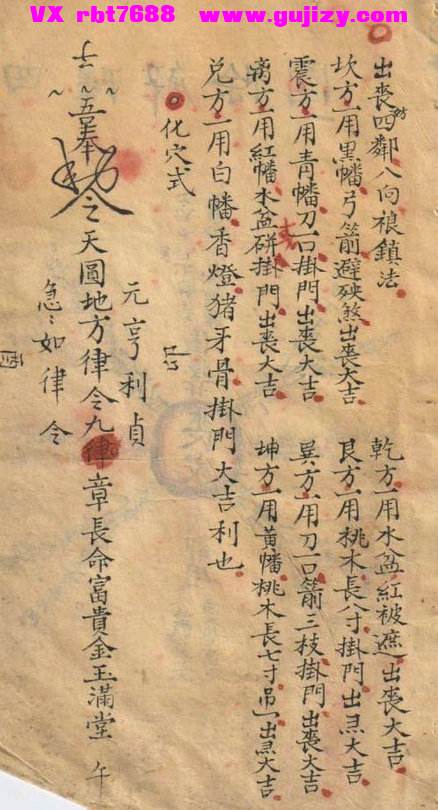 VX rbt7688 www.gujizy.com
出喪四鄰八向禳鎮法
坎方一用黑幡弓箭避殃煞出喪大吉
乾方一用水盆紅被遮出喪大吉
震方一用青幡刀一口掛門出喪大吉
艮方一用桃木長八寸掛門出灵大吉
离方一用紅幡水盆硏掛門出喪大吉
巽方一用刀一口箭三枝掛門出喪大吉
兌方一用白幡香燈猪牙骨掛門大吉利也
坤方一用黃幡桃木長七寸吊一出灵大吉
化穴式
元亨利貞
五奉
之天圓地方律令九章長命富貴金玉滿堂
午
急急如律令